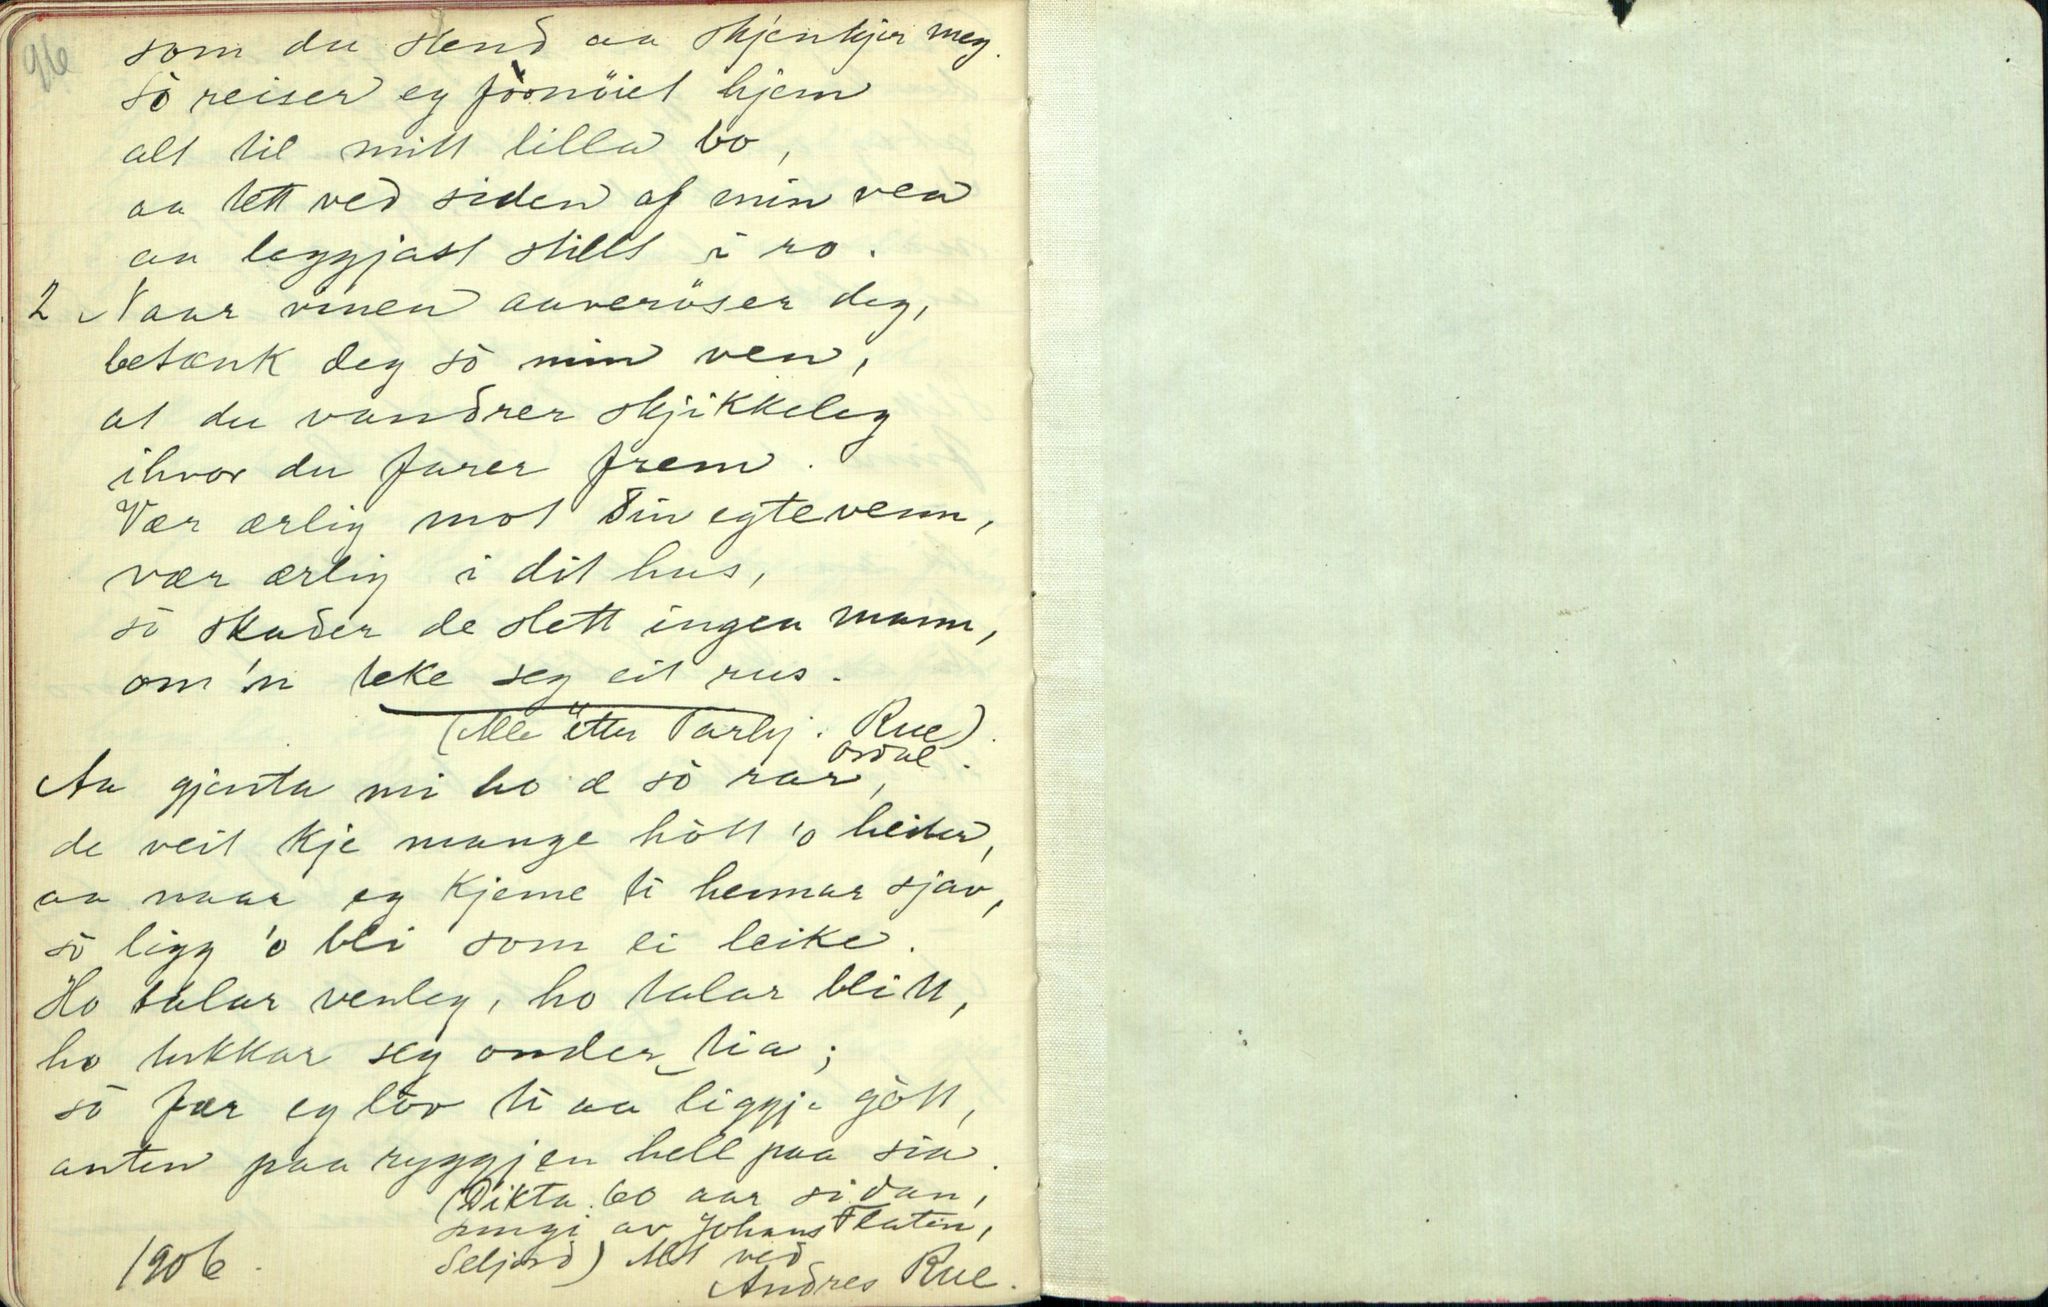 96
som du stend aa skjenkjer meg.
Sò reiser eg fòrnöiet hjem
alt til mitt lilla bo,
aa tett ved siden af min ven
aa leggjast stillt i ro.
2 Naar vinen aaveröser deg,
betænk deg sò min ven,
at du vandrer skjikkeleg
ihvor du farer frem.
Vær ærlig mot din egtevenn,
vær ærlig i dit hus,
sò skader de slett ingen mann,
om 'n teke seg eit rus.
(Alle etter Tarkj. Rue).
Aa gjenta mi ho æ sò rar,
de veit kje mange hòtt 'o heiter,
aa naar eg kjeme ti hennar sjav,
sò ligg 'o bli som ei leike.
Ho talar venleg, ho talar blitt,
ho tukkar seg onder tia;
sò fær eg löv ti aa liggje gòtt,
anten paa ryggjen hell paa sia.
(Dikta 60 aar sidan,
sungi av Johans Flatin,
Seljord) Alt ved
Andres Rue.
1906.